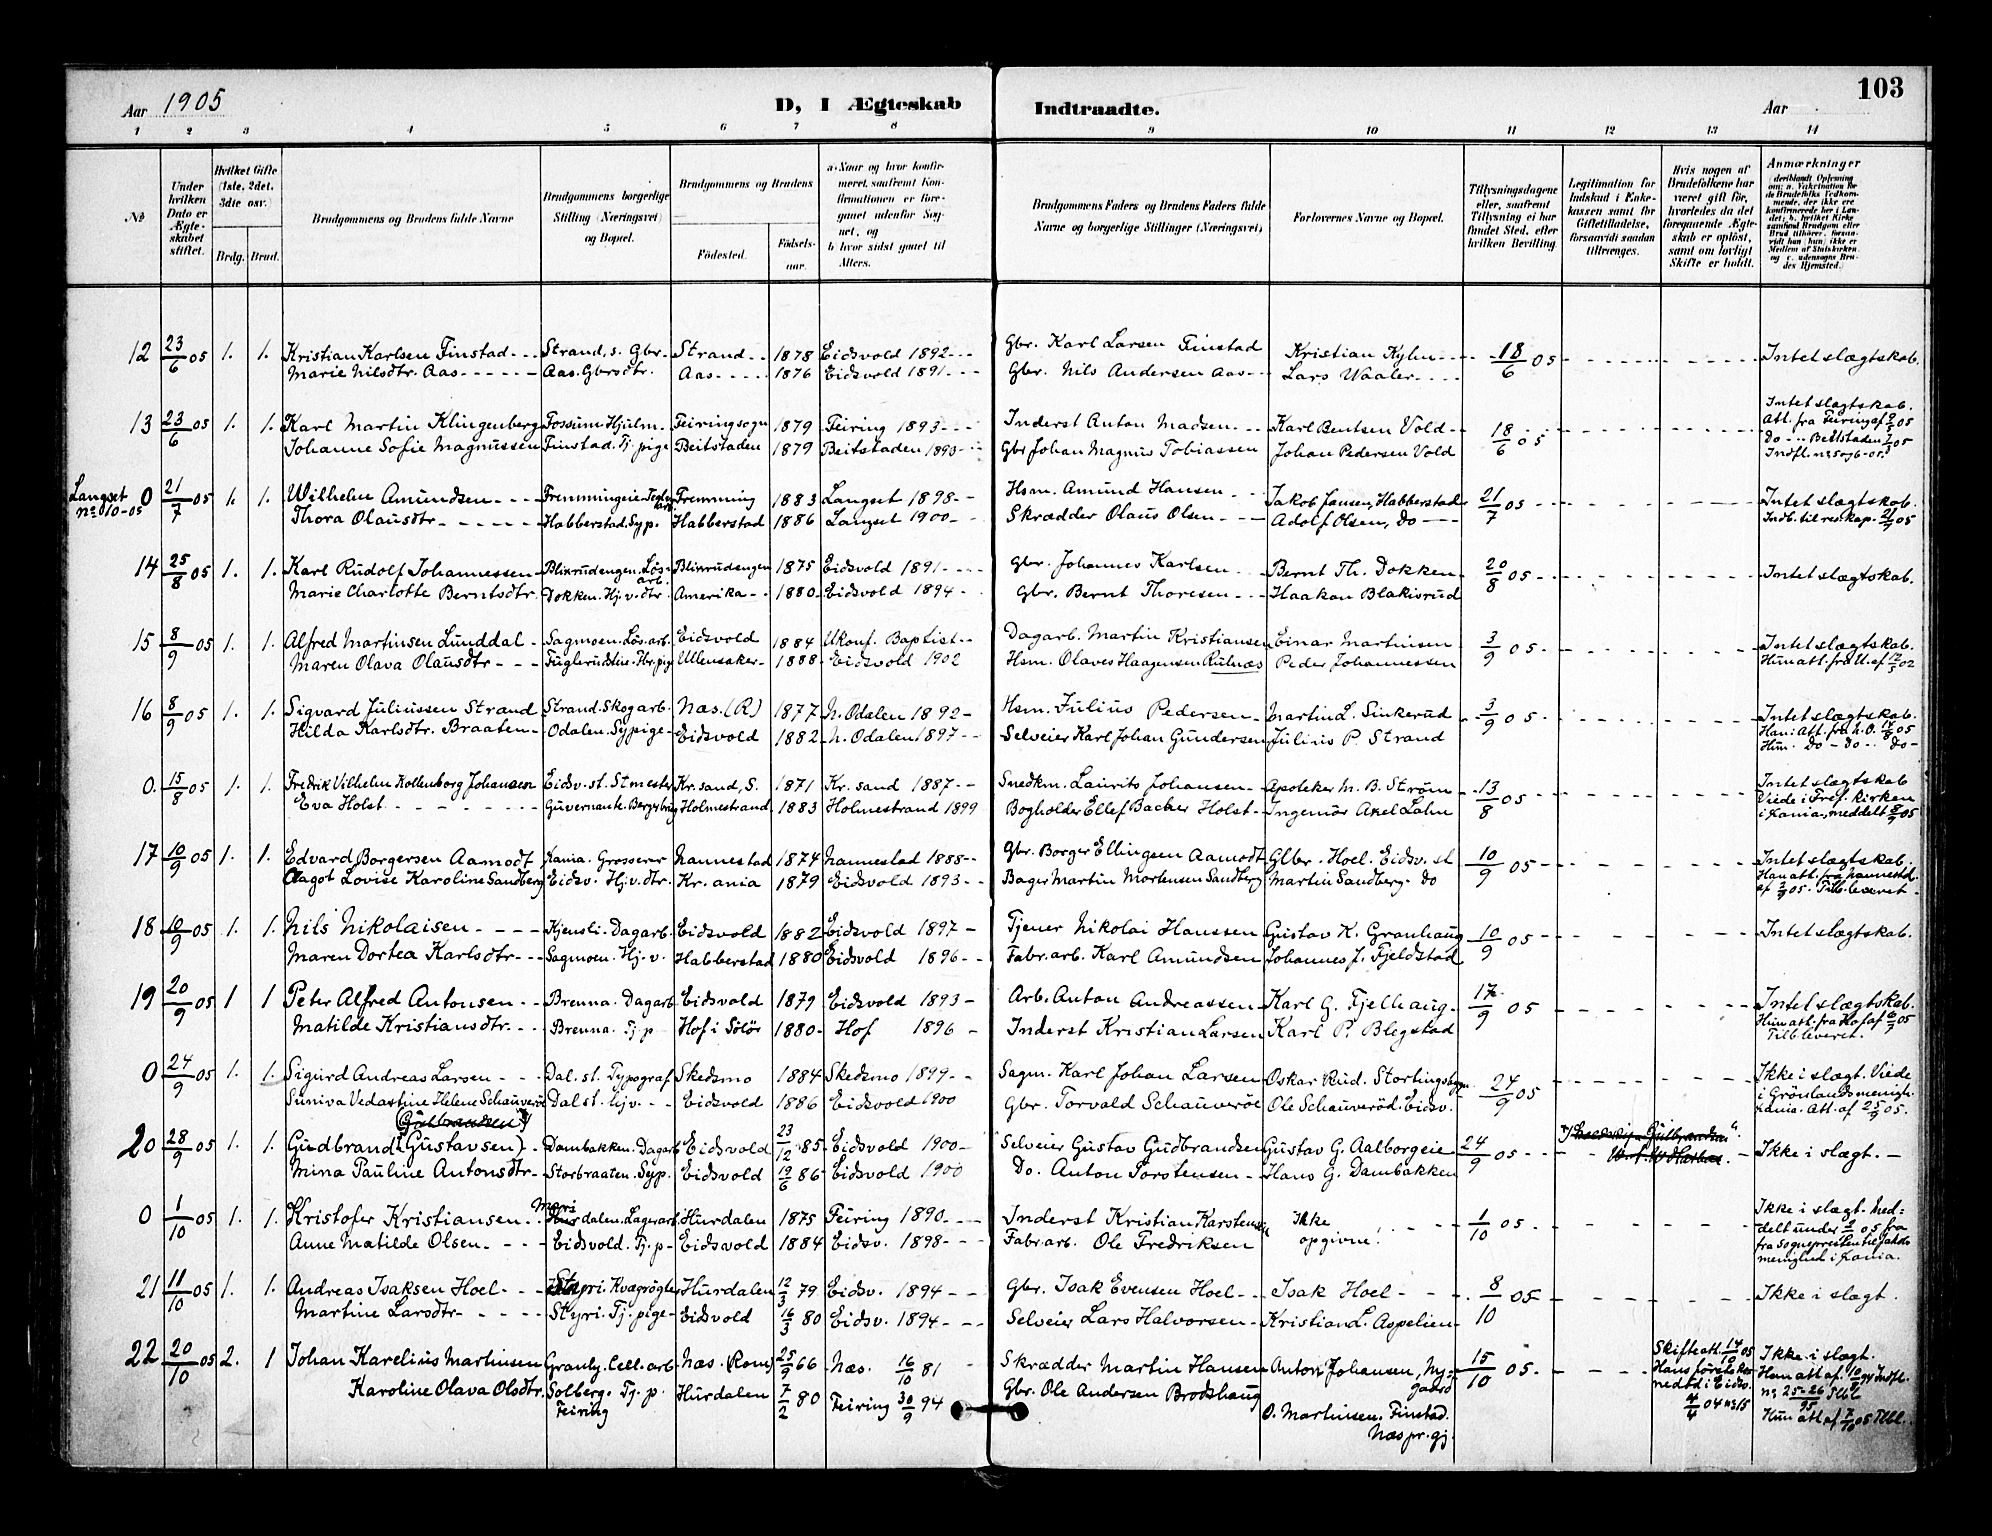 103
Aar 1905
D, I Ægteskab
Indtraadte.
Aar
1 2 3 4 5 6 7 8 9 10 11 12 13 14
No
Under hvilken Dato er Ægteskabet stiftet.
Hvilket Gifte (1ste, 2det, 3die osv.)
Brdg. Brud.
Brudgommens og Brudens fulde Navne
Brudgommens borgerlige Stilling (Næringsvei) og Bopæl.
Brudgommens og Brudens
Fødested.
Fødselsaar.
a. Naar og hvor konfirmeret, saafremt Konfirmationen er foregaaet udenfor Sognet, og
b. hvor sidst gaaet til Alters.
Brudgommens Faders og Brudens Faders fulde Navne og borgerlige Stillinger (Næringsvei)
Forlovernes Navne og Bopæl.
Tillysningsdagene eller, saafremt Tillysning ei har fundet Sted, efter hvilken Bevilling.
Legitimation for Indskud i Enkekassen samt for Giftetilladelse, forsaavidt saadan tiltrænges.
Hvis nogen af Brudefolkene har været gift før, hvorledes da det foregaaende Ægteskab er opløst, samt om lovligt Skifte er holdt.
Anmærkninger (deriblandt Oplysning om: a. Vakcination for de Brudefolks Vedkommende, der ikke ere konfirmerede her i Landet; b. hvilket Kirkesamfund Brudgom eller Brud tilhører, forsaavidt han (hun) ikke er Medlem af Statskirken, og c. udensogns Brudes Hjemsted.)
12 23/6 05 1. 1. Kristian Karlsen Finstad Strand, s. Gbr. Strand 1878 Eidsvold 1892 Gbr. Karl Larsen Finstad Kristian Kylen 18/6 05 Intet slægtskab.
Marie Nilsdtr. Aas Aas. Gbrsdtr. Aas 1876 Eidsvold 1891 Gbr. Nils Andersen Aas Lars Waaler
13 23/6 05 1. 1. Karl Martin Klingenberg Fossum Hjulm. Feiringsogn 1879 Feiring 1893 Inderst Anton Madsen Karl Bentsen Vold 18/6 05 Intet slægtskab.
Att. fra Feiring af 9/5 05
Johanne Sofie Magnussen Finstad. Tj. pige Beitstaden 1879 Beitstaden 1893 Gbr Johan Magnus Tobiassen Johan Pedersen Vold Do Beitstaden 7/5 05
Indfl. no 5 og 6 - 05.
Langset no 10-05
0 21/7 05 1. 1. Wilhelm Amundsen Fremming 1883 Langset 1898 Hsm. Amund Hansen Jakob Jansen, Habberstad 21/7 05 Intet slægtskab.
Thora Olausdtr Habberstad Syp. Habberstad 1886 Langset 1900 Skrædder Olaus Olsen Adolf Olsen, do Indb. til res. kap. 05
14 25/8 05 1. 1. Karl Rudolf Johannessen Blixrudengen. Løs-arb. Blixrudengen 1875 Eidsvold 1891 Gbr. Johannes Karlsen Bernt Th. Dokken 20/8 05 Intet slægtskab.
Marie Charlotte Berntsdtr. Dokken. Hj. v. dtr. Amerika 1880 Eidsvold 1894 Gbr. Bernt Thoresen Haakon Blakisrud
15 8/9 05 1. 1. Alfred Martinsen Lunddal Sagmoen. Løs. arb. Eidsvold 1884 Ukonf. Baptist Dagarb. Martin Kristiansen Einar Martinsen 3/9 05 Intet slægtskab.
Maren Olava Olausdtr Ullensaker 1888 Eidsvold 1902 Hsm. Olaves Haagensen Rulnæs Peder Johannessen Hun att. fra U. af 12/5 02
16 8/9 05 1. 1. Sigvard Juliussen Strand Strand. Skogarb. Næs. (R) 1877 N. Odalen 1892 Hsm. Julius Pedersen Martin L. Sinkerud 3/9 05 Intet slægtskab.
Han: Att. fra N. O. 05
Hilda Karlsdtr. Braaten Odalen. Sypige Eidsvold 1882 N. Odalen 1897 Selveier Karl Johan Gundersen Julius P. Strand Hun. Do - Do - Do -
0. 15/8 05 1. 1. Fredrik Vilhelm Kollenborg Johansen Eidsv. st. Stmester Kr. sand, S. 1871 Kr. sand 1887 Snedkm. Laurits Johansen Apoteker M. B. Strøm 13/8 05 Intet slægtskab
Eva Holst Guvernante. Holmestrand 1883 Holmestrand 1899 Bogholder Ellef Backer Holst Ingeniør Axel Lahn Viede i Tref. kirken i Kania., meddelt 8/9 05
17 10/9 05 1. 1. Edvard Borgersen Aamodt Kania. Grosserer Nannestad 1874 Nannestad 1888 Gbr. Borger Ellingsen Aamodt Glbr. Hoel. Eidsv. st 10/9 05 Intet slægtskab.
Aagot Lovise Karoline Sandberg Eidsv. Hj. v. dtr. Kr. ania 1879 Eidsvold 1893 Bager Martin Mortensen Sandberg Martin Sandberg. do Han att. fra Nannestd. af 05. Tilb. leveret
18 10/9 05 1. 1. Nils Nikolaisen Kjensli. Dagarb. Eidsvold 1882 Eidsvold 1897 Tjener Nikolai Hanssen Gustav K. Granhaug 10/9 05 Intet slægtskab.
Maren Dortea Karlsdtr Sagmoen. Hj. v. Habberstad 1880 Eidsvold 1896 Fabr. arb. Karl Amundsen Johannes J. Fjeldstad
19 20/9 05 1 1 Peter Alfred Antonsen Brenna. Dagarb Eidsvold 1879 Eidsvold 1893 Arb. Anton Andreassen Karl G. Fjelhaug 17/9 05 Intet slægtskab.
Matilde Kristiansdtr. Brenna. Tj. p Hof i Solør 1880 Hof 1896 Inderst Kristian Larsen Karl P. Blegstad Hun att. fra Hof af 6/9 05 Tilb. leveret.
0 24/9 05 1. 1. Sigurd Andreas Larsen Dal. st. Typograf Skedsmo 1884 Skedsmo 1899 Sagm. Karl Johan Larsen Oskar Rud. 24/9 05 Ikke i slægt. Viede
Suniva Vedastine Helene Schauverøe Dal st. hjv. Eidsvold 1886 Eidsvold 1900 Gbr. Torvald Schauverøe Ole Schauverød. Eidsv. i Grønlands menigh. Kania. Att. af 25/9 05.
(Gulbrandsen)
20 28/9 05 1. 1. Gudbrand (Gustavsen) Dambakken. Dagarb Eidsvold 23/12 85 Eidsvold 1900 Selveier Gustav Gudbrandsen Gustav G. Aalborgeie 24/9 05 Ikke i slægt.
Mina Pauline Antonsdtr Storbraaten. Syp. Eidsvold 19/6 86 Eidsvold 1900 Do. Anton Torstensen Hans G. Dambakken
0 1/10 05 1. 1. Kristofer Kristiansen Hurdalen 1875 Feiring 1890 Inderst Kristian Karstensen Ikke opgivne. 1/10 05 Ikke i slægt. Meddelt under 05 fra
Anne Matilde Olsen Eidsvold. Tj. p Eidsvold 1884 Eidsv. 1898 Fabr. arb. Ole Fredriksen fra Sognepresten til Jakobs menighed i Kania.
21 11/10 05 1. 1. Andreas Isaksen Hoel Styri. Kvægrøgter Hurdalen 12/3 79 Eidsv. 1894 Gbr. Isak Evensen Hoel Isak Hoel 8/10 05 Ikke i slægt.
Martine Larsdtr Styri. Tj. pige Eidsvold 16/3 80 Eidsv. 1894 Selveier Lars Halvorsen Kristian L. Aspelien
22 20/10 05 2. 1 Johan Karelius Martinsen Granly. Cell. arb. Næs. (Rom) 25/9 66 Næs. 16/10 81 Skrædder Martin Hansen Anton Johansen, Nygaard 15/10 05 Skifteatt. 14/10 05 Hans første kone død i Eidsv. 4/4 04 no 15 Ikke i slægt. Han att af 10/5 94 Indfl. no 25-26/95 Tlbl
Karoline Olava Olsdtr. Solberg. Tj. p. Feiring Hurdalen 7/2 80 Feiring 30/9 94 Gbr. Ole Andersen Brodshaug O. Martinsen. Finstad. Næs pr. gj. Hun att af 7/10 05 Tlbl.